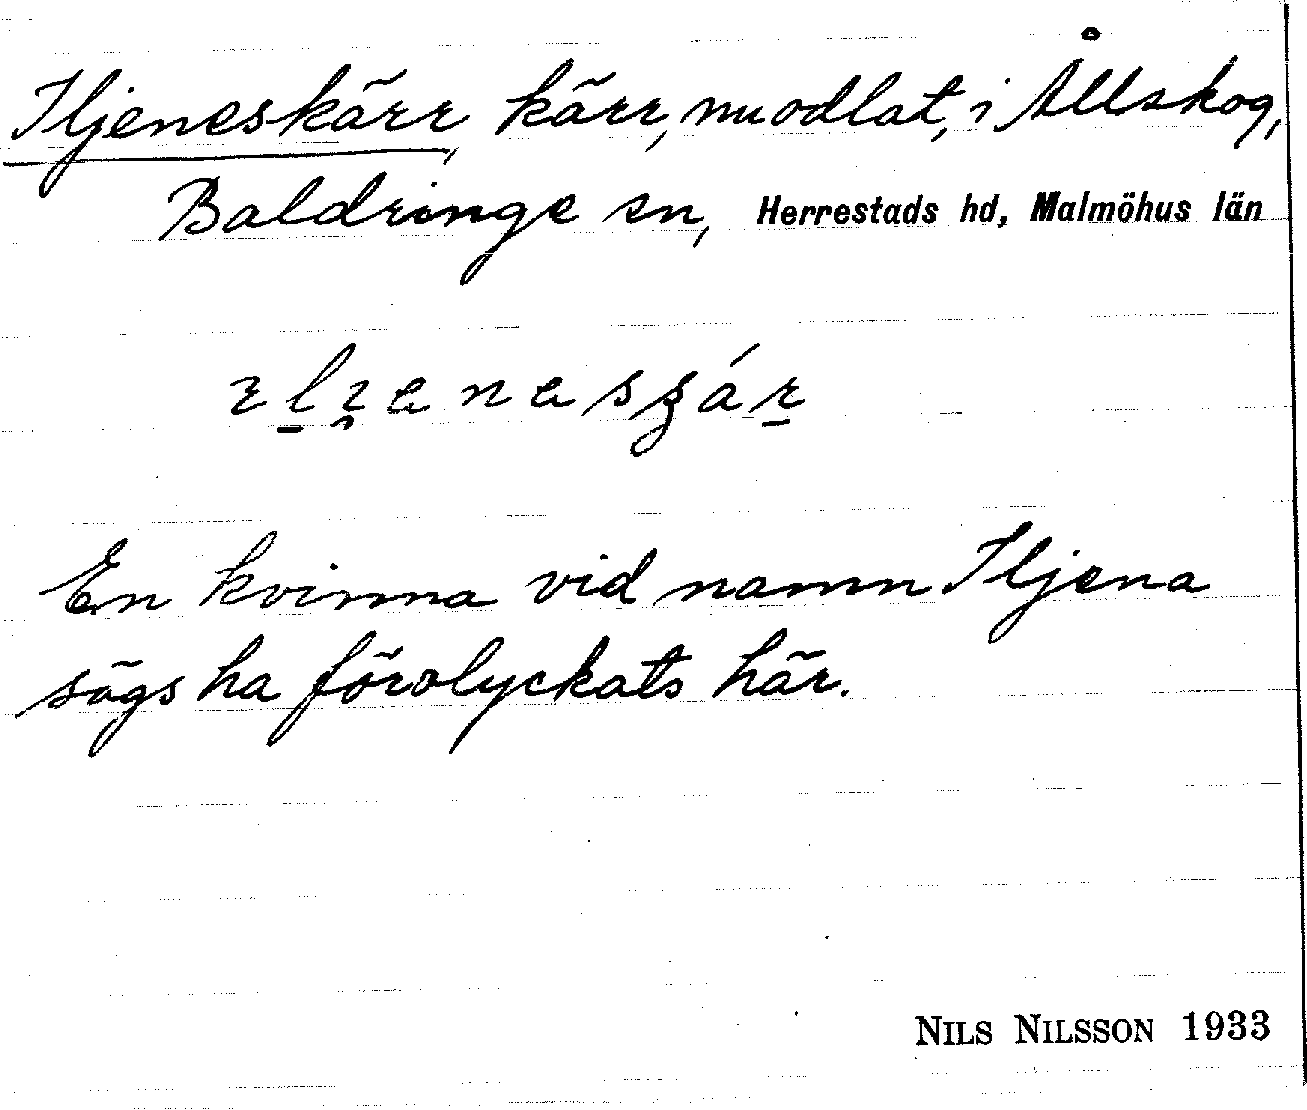 Iljeneskärr, kärr, nu odlat, i Ållskog,
Baldringe sn, Herrestads hd, Malmöhus län
En kvinna vid namn Iljena
sägs ha förolyckats här.
NILS NILSSON 1933